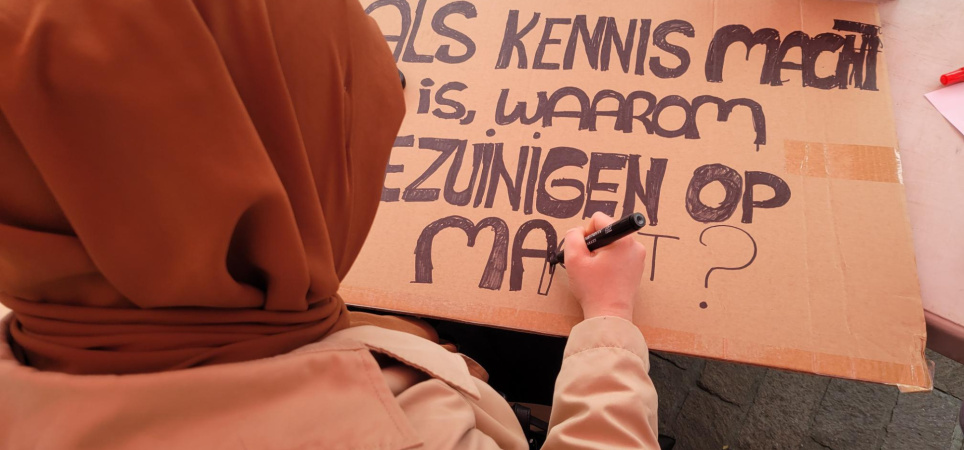 ALS KENNIS MACHT
is, WAAROM
EZUiNiGEN OP
MA T ?